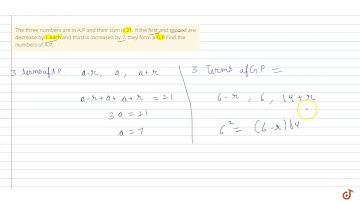 The three numbers are in A.P and their sum is 21. If the first and second are
decrease by 1 each and third is increased by 7, they form a G.P Find the
numbers of A.P.
3 terms of A.P a-r, a, a+r
a-r+a+a+r = 21
3a = 21
a = 7
3 terms of G.P =
6-r, 6, 14+r
6² = (6-r)(14